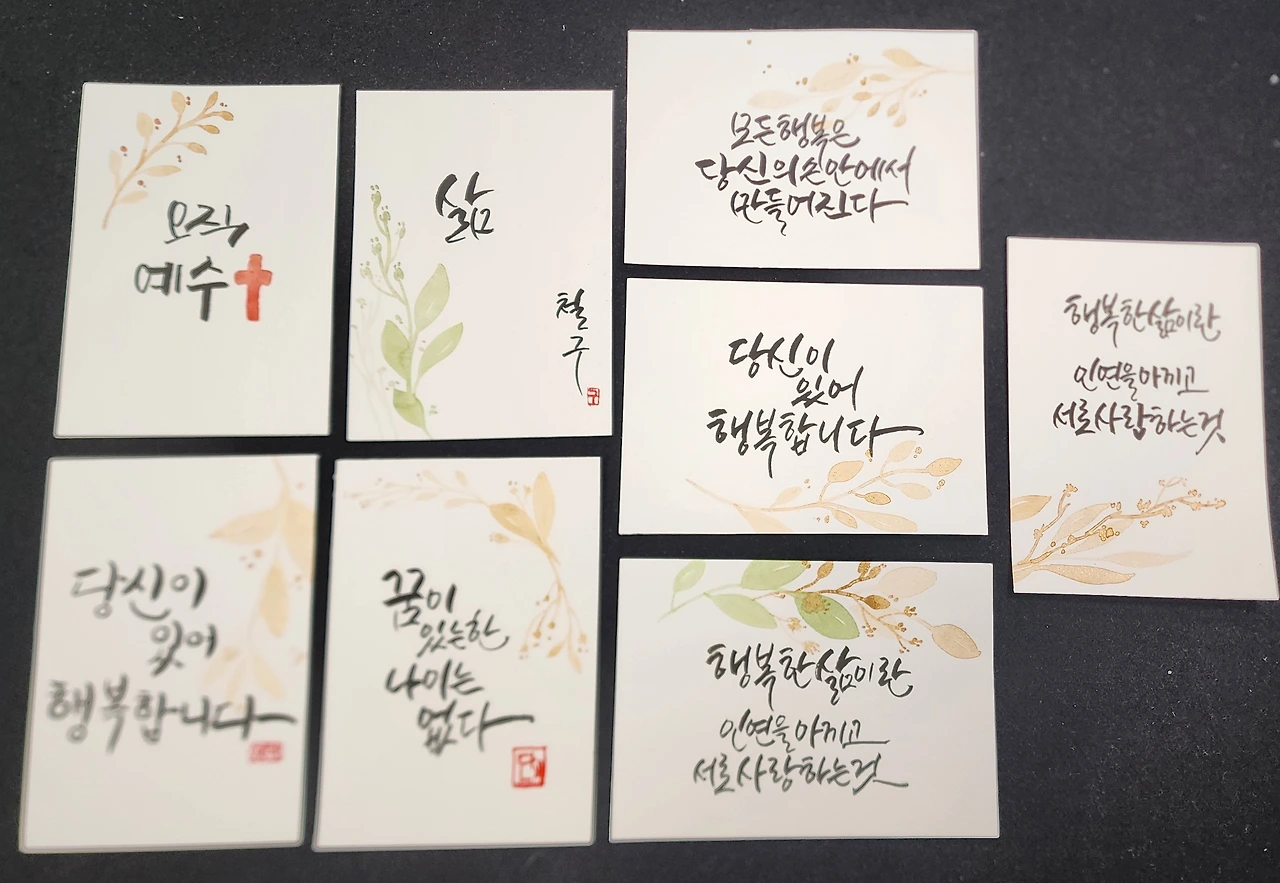 오직
예수
삶
철
구
모든행복은
당신의손안에서
만들어진다
당신이
있어
행복합니다
행복한삶이란
인연을아끼고
서로사랑하는것
당신이
있어
행복합니다
꿈이
있는한
나이는
없다
행복한삶이란
인연을아끼고
서로사랑하는것